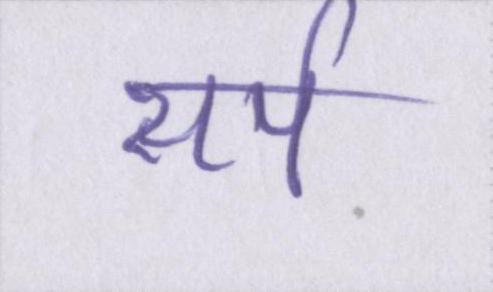 सर्प